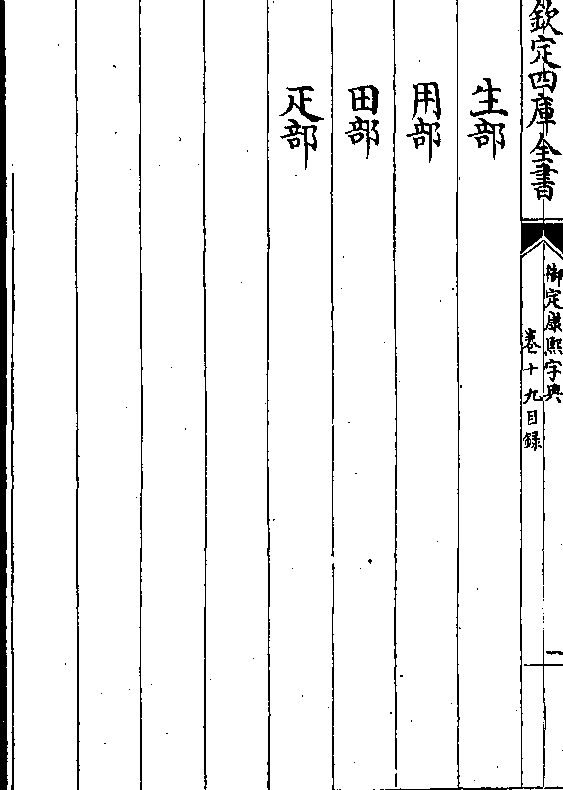 欽定四庫全書
御定康熙字典
卷十九目録
一
生部
用部
田部
疋部